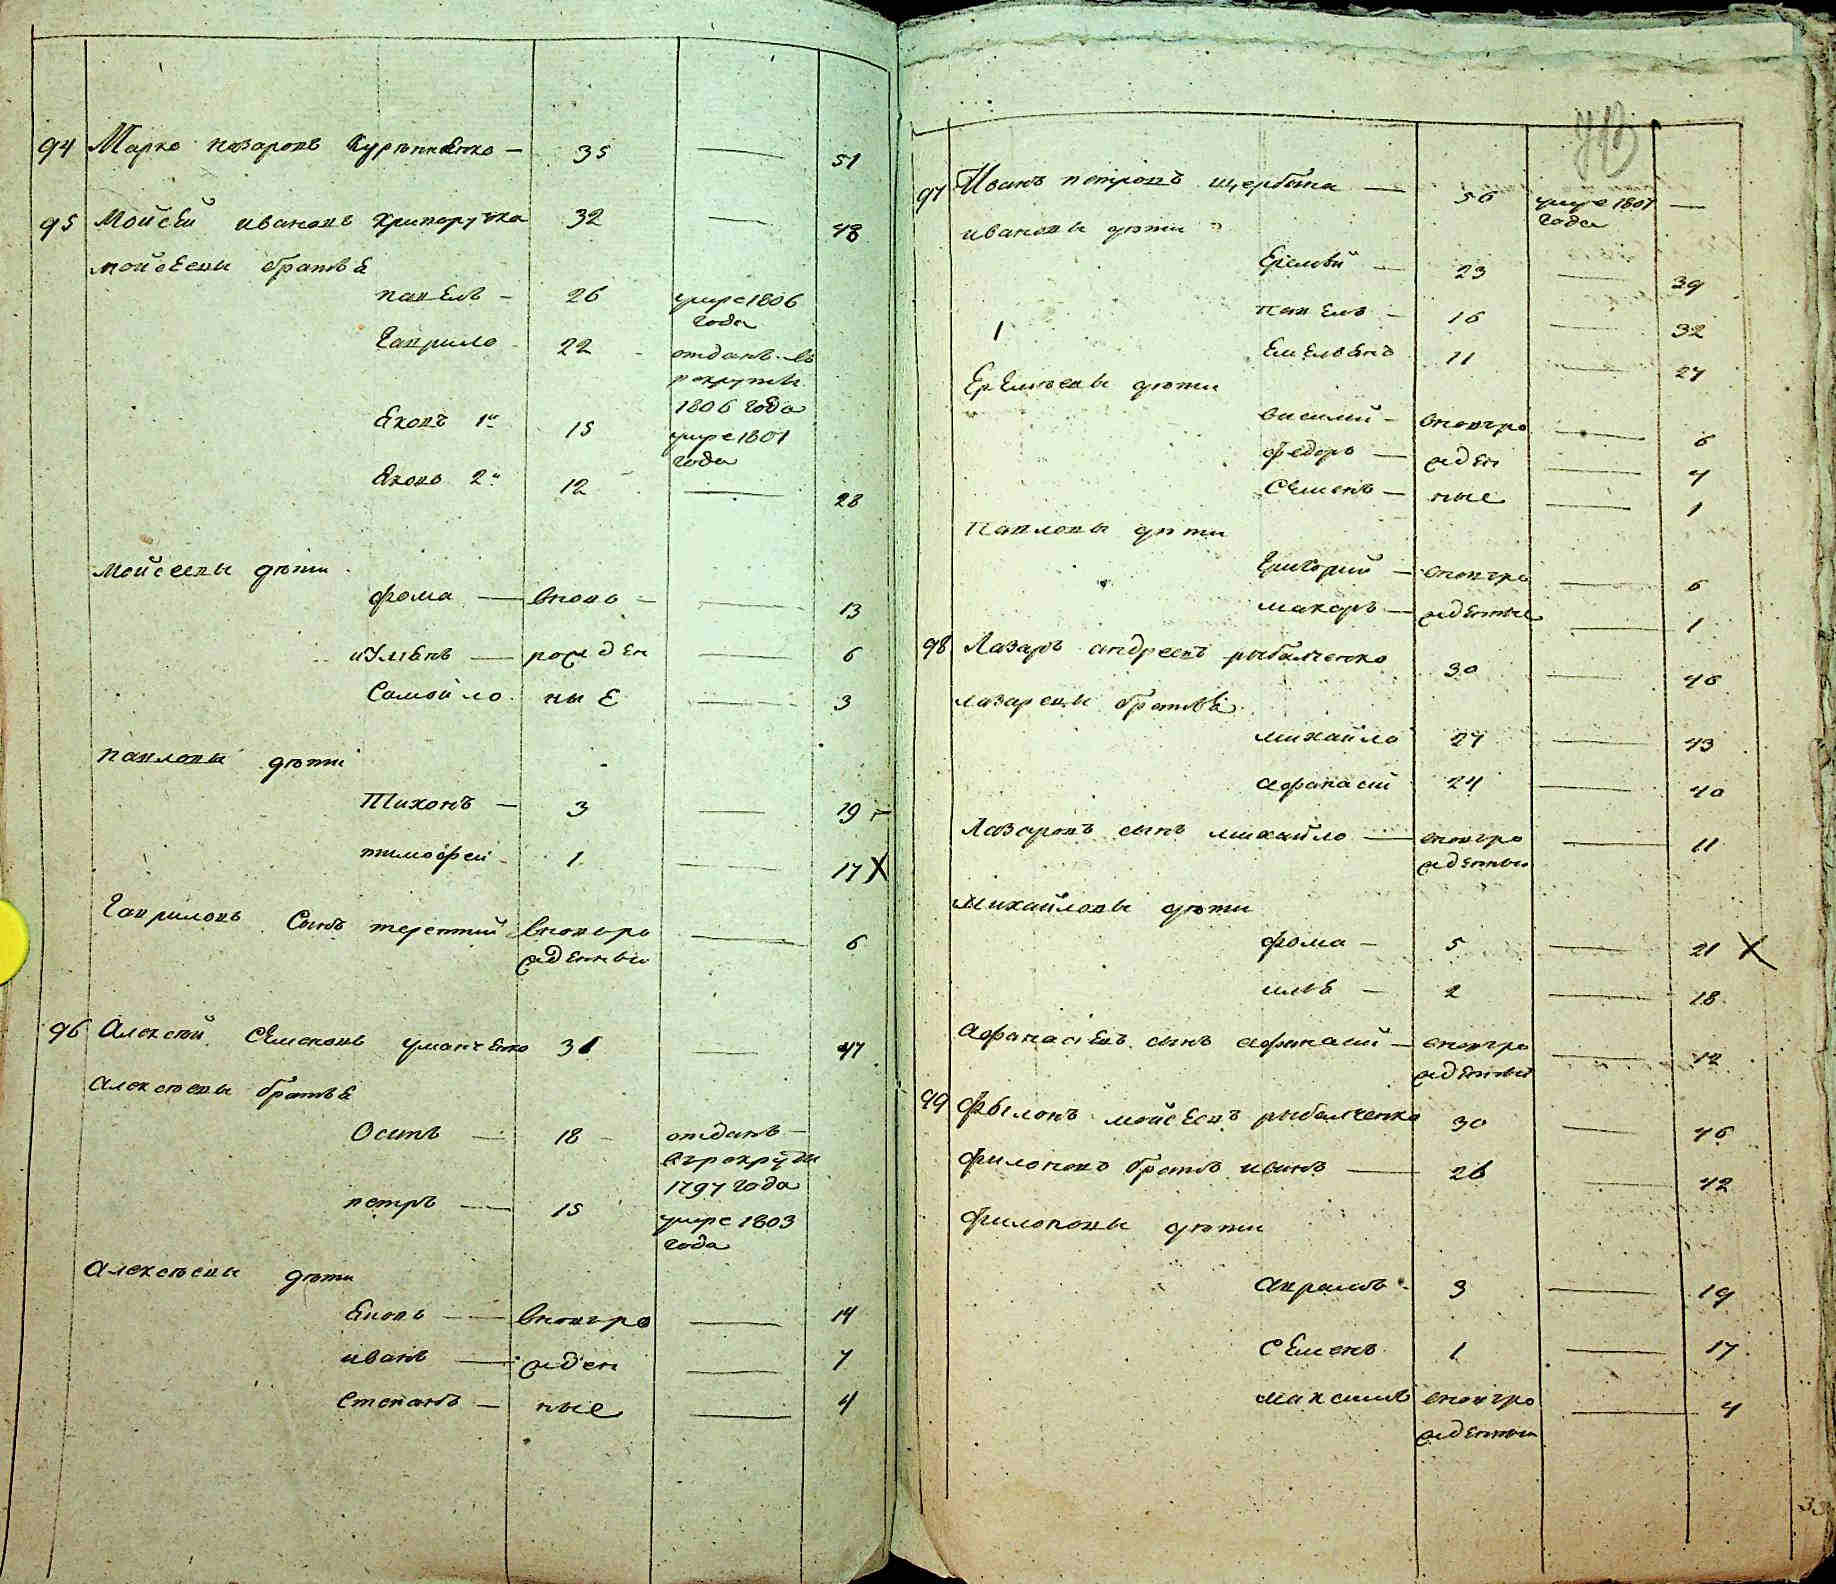 94 Марко назаровъ Курѣнненко — 35 — 51
95 Мойсей ивановъ криворучка 32 — 48
мойсеевы братья
павелъ — 26 умре 1806
года
Гаврило 22 отданъ въ
рекруты
1806 года
Яковъ 1й 15 умре 1801
года
Яковъ 2й 12 — 28
Мойсеевы дѣти
фома — вновь — 13
рожден — 6
Самойло ные — 3
павловы дѣти
Тихонъ — 3 — 19
тимофей 1 — 17 X
Гавриловъ Сынъ терентий вновьро — 6
жденный
96 Алексѣй Семеновъ уманченко 31 — 47
Алексѣевы братья
Осипъ — 18 отданъ
въ рекруты
1797 года
петръ — 15 умре 1803
года
Алексѣевы дѣти
Яковъ — вновьро — 14
иванъ — жден — 7
Степанъ — ные — 4
97 Иванъ петровъ щербына — 56 умре 1807 —
года
ивановы дѣти
Еремѣй — 23 — 39
павелъ — 16 — 32
1
Емельянъ 11 — 27
Еремѣевы дѣти
василий — вновъро — 6
федоръ — жден — 4
Семенъ — ные — 1
Павловы дѣти
Григорий — вновъро — 6
макаръ — жденные — 1
98 Лазарь андреевъ рыбалченко 30 — 46
лазаревы братья
михайло 27 — 43
афанасий 24 — 40
Лазаревъ сынъ михайло — вновъро — 11
жденный
Михайловы дѣти
фома — 5 — 21 X
илья — 2 — 18
Афанасиевъ сынъ афанасий — вновъро — 12
жденный
99 Фылонъ мойсеевъ рыбалченко 30 — 46
филоновъ братъ иванъ — 26 — 42
филоновы дѣти
аврамъ 3 — 19
Семенъ 1 — 17
максимъ вновъро — 4
жденный
33